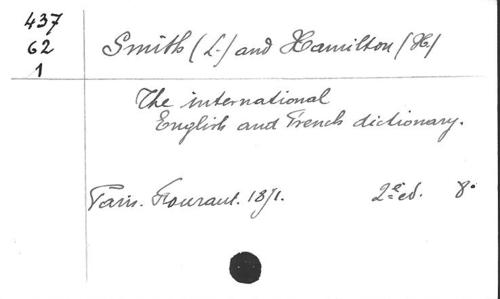 437
62
1
Smith (L.) and Hamilton (H)
The international
English and French dictionary.
Paris. Fouraut. 1871. 2e ed. 8°